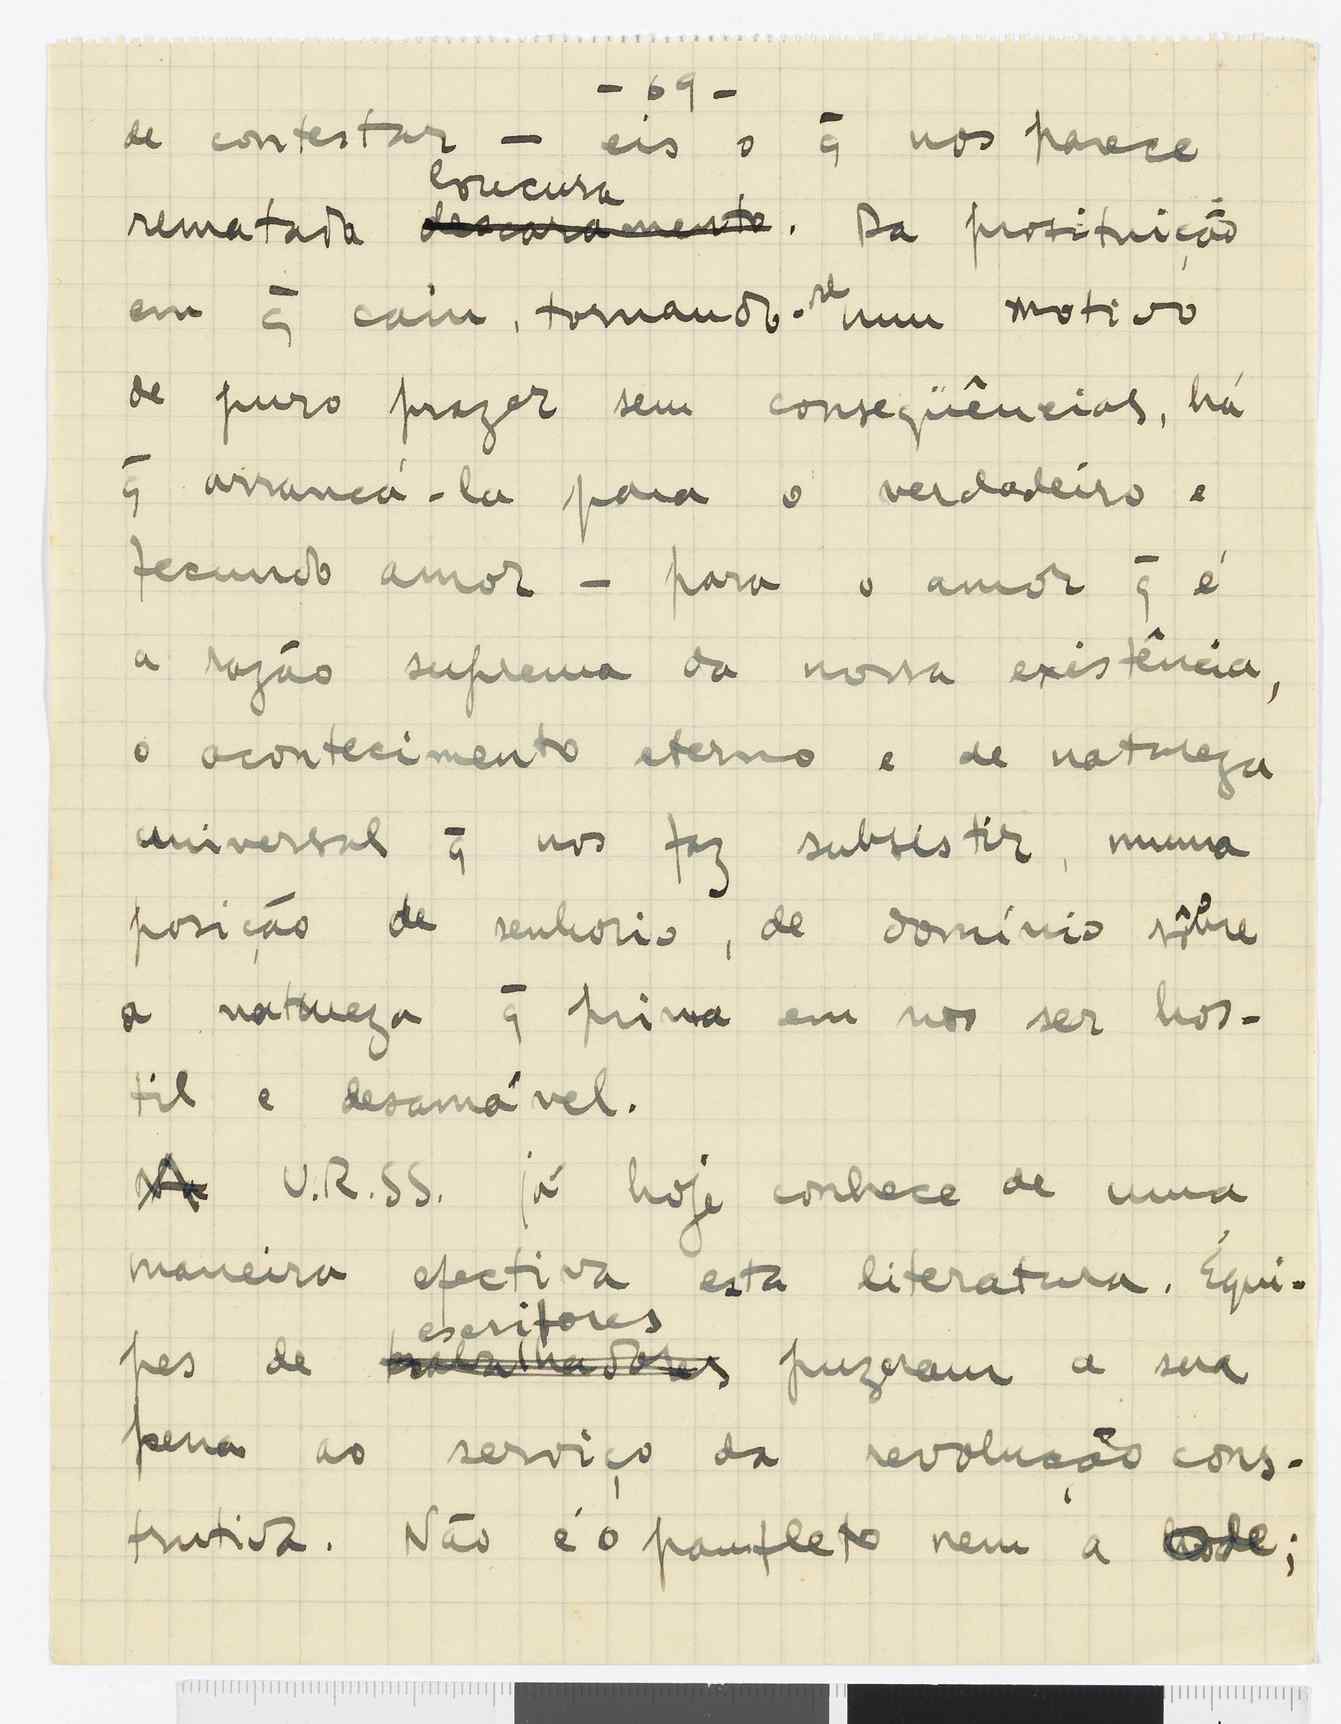 - 69 -
de contestar - eis o q̄ nos parece
loucura
rematada descaramento. Da prosituição
em q̄ caiu, tornando-se num motivo
de puro prazer sem conseqüências, há
q̄ arrancá-la para o verdadeiro e
fecundo amor - para o amor q̄ é
a razão suprema da nossa existência,
o acontecimento eterno e de natureza
universal q̄ nos faz subsistir, numa
posição de senhorio, de domínio sôbre
a natureza q̄ prima em nos ser hos-
til e desamável.
U.R.SS. já hoje conhece de uma
maneira efectiva esta literatura. Équi-
escritores
pes de trabalhadores puzeram a sua
pena ao serviço da revolução cons-
trutiva. Não é o panfleto nem a ode;